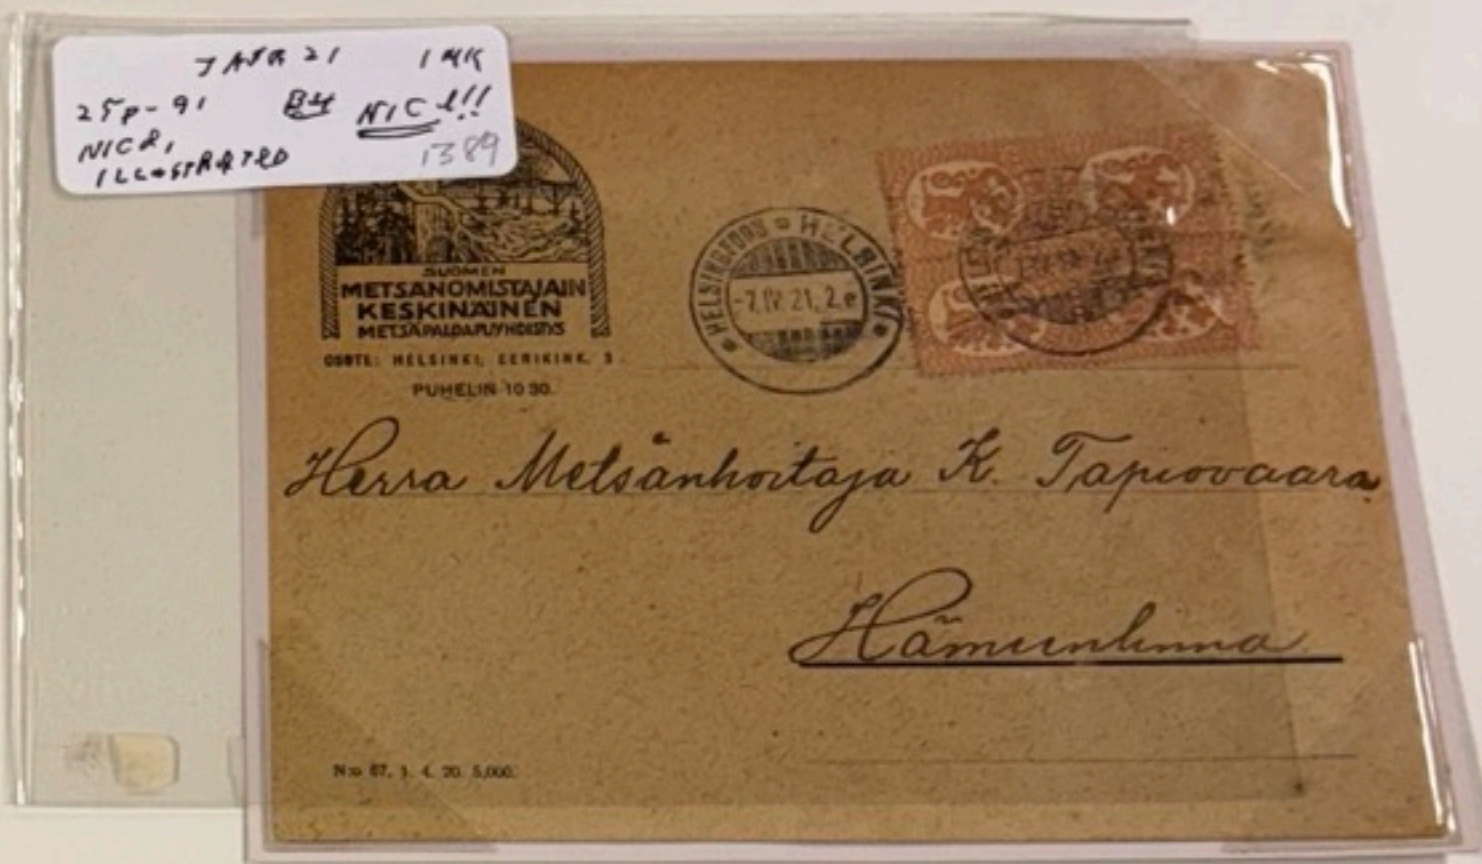 7 APR 21 1 MK
25p-91 B4 NICE!!
NICE, 1389
ILLUSTRATED
SUOMEN
METSÄNOMISTAJAIN
KESKINÄINEN
METSÄPALOAPUYHDISTYS
OSOTE: HELSINKI, EERIKINK. 3.
PUHELIN 10 30.
HELSINGFORS HELSINKI
-7.IV.21. 2.e
Herra Metsänhoitaja K. Tapiovaara
Hämeenlinna
N:o 67, 1. 4. 20. 5,000.